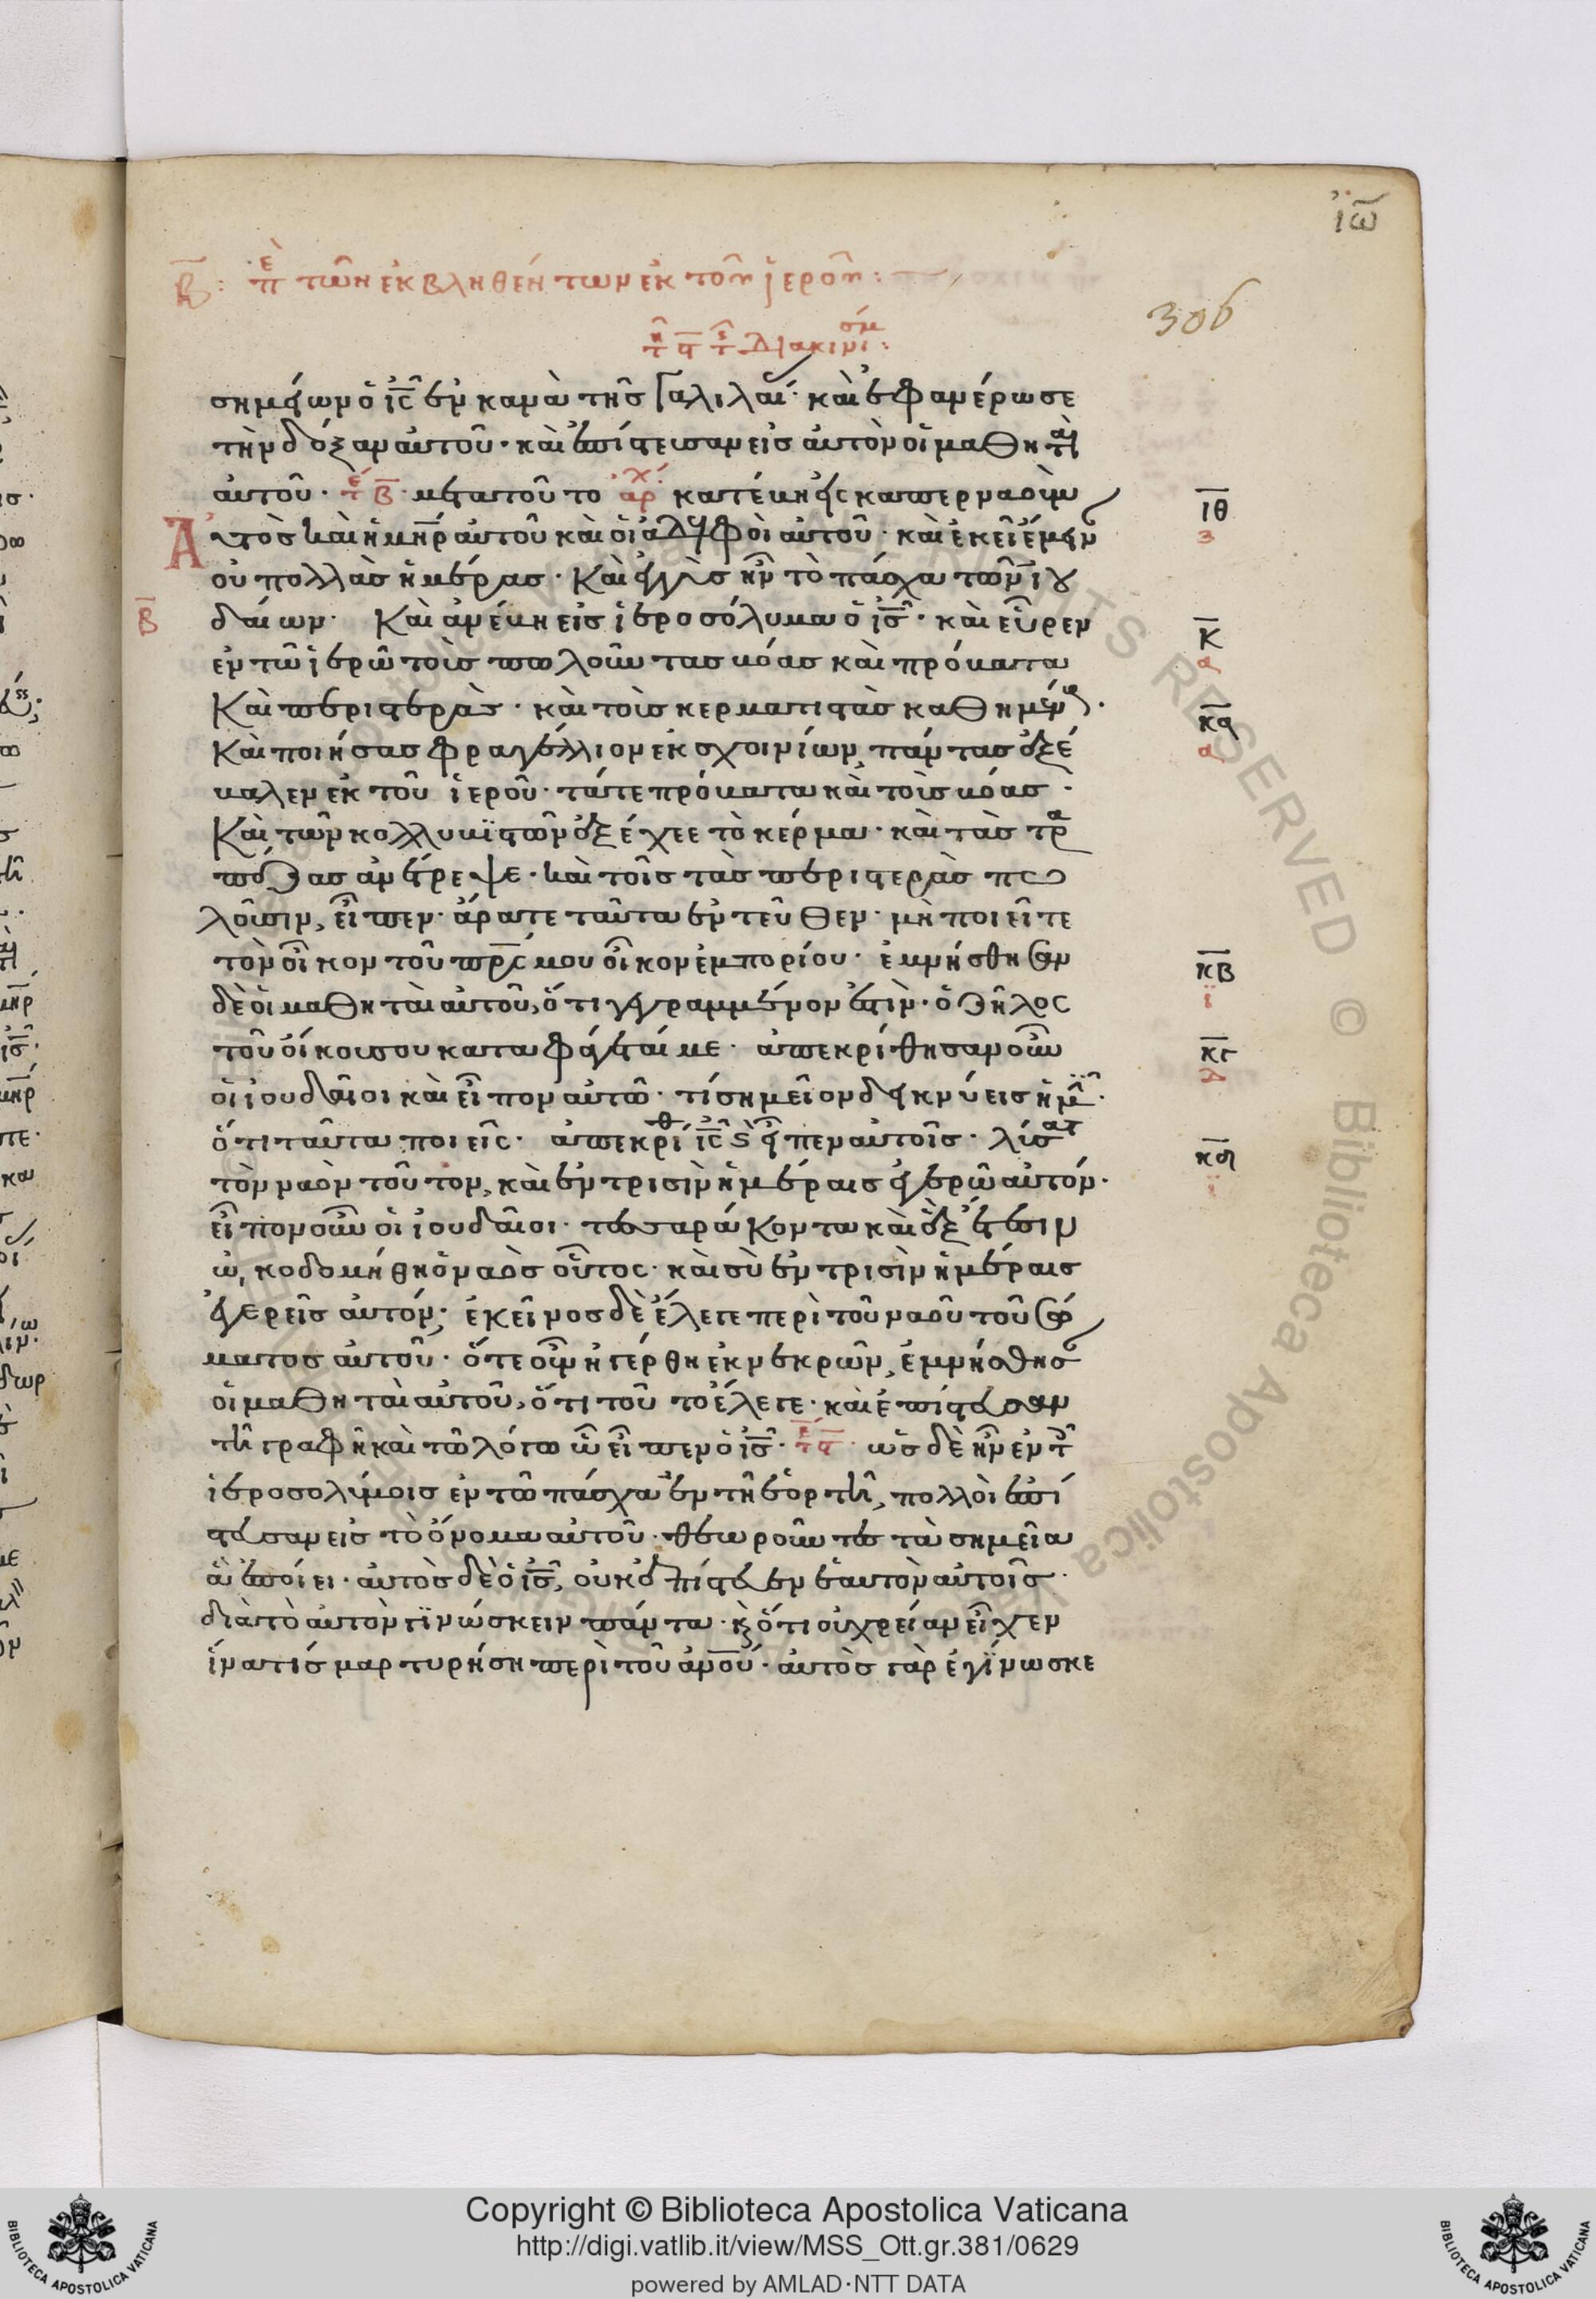 ἰω̃
β̅: πε τῶν ἐκβληθέντων ἐκ τοῦ ἱεροῦ:
306
τῆ ϛ̅ τῆς Διακινησίμ:
σημείων ὁ ις ἐν κανὰ τῆς Γαλιλαί· καὶ ἐφανέρωσε
τὴν δόξαν αὐτοῦ· καὶ ἐπίστευσαν εἰς αὐτὸν οἱ μαθηταὶ
αὐτοῦ· τε β̅· μετὰ τοῦτο ἀρχ κατέβη εἰς καπερναοὺμ
ιθ
Αὐτὸς καὶ ἡ μηρ αὐτοῦ καὶ οἱ ἀδελφοὶ αὐτοῦ· καὶ ἐκεῖ ἔμειν
ζ
οὐ πολλὰς ἡμέρας· Καὶ ἐγγὺς ἦν τὸ πάσχα τῶν ἰου
β̅ δαίων· Καὶ ἀνέβη εἰς ἱεροσόλυμα ὁ ις· καὶ εὗρεν
κ
ἐν τῶ ἱερῶ τοὺς πωλοῦντας βόας καὶ πρόβατα
α
Καὶ περιστεράς· καὶ τοὺς κερματιστὰς καθημένους·
κα
Καὶ ποιήσας φραγέλλιον ἐκ σχοινίων, πάντας ἐξέ
α
βαλεν ἐκ τοῦ ἱεροῦ· τά τε πρόβατα καὶ τοὺς βόας·
Καὶ τῶν κολλυβϊστῶν ἐξέχεε τὸ κέρμα· καὶ τὰς τρα
πέζας ἀνέτρεψε· καὶ τοῖς τὰς περιστερὰς πω
λοῦσιν, εἶπεν· ἄρατε ταῦτα ἐντεῦθεν· μὴ ποιεῖτε
τὸν οἶκον τοῦ πρς μου οἶκον ἐμπορίου· ἐμνήσθησαν
κβ
δὲ οἱ μαθηταὶ αὐτοῦ, ὅτι γεγραμμένον ἐστὶν· ὁ ζῆλος
ϊ
τοῦ οἴκου σου καταφάγεταί με· ἀπεκρίθησαν οὖν
κγ
οἱ ἰουδαῖοι καὶ εἶπον αὐτῶ· τί σημεῖον δεικνύεις ἡμῖ·
δ
ὅτι ταῦτα ποιεῖς· ἀπεκρίθ ις ϗ εἶπεν αὐτοῖς· λύσατ
κδ
τὸν ναὸν τοῦτον, καὶ ἐν τρισὶν ἡμέραις ἐγερῶ αὐτόν·
ϊ
εἶπον οὖν οἱ ἰουδαῖοι· τεσσαράκοντα καὶ ἓξ ἔτεσιν
ὠκοδομήθη ὁ ναὸς οὗτος· καὶ σὺ ἐν τρισὶν ἡμέραις
ἐγερεῖς αὐτόν; ἐκεῖνος δὲ ἔλεγε περὶ τοῦ ναοῦ τοῦ σώ
ματος αὐτοῦ· ὅτε οὖν ἠγέρθη ἐκ νεκρῶν, ἐμνήσθησ
οἱ μαθηταὶ αὐτοῦ, ὅτι τοῦτο ἔλεγε· καὶ ἐπίστευσαν
τῆ γραφῆ καὶ τῶ λόγω ὧ εἶπεν ὁ ις· ὡς δὲ ἦν ἐν τ
ἱεροσολύμοις ἐν τῶ πάσχα ἐν τῆ ἑορτῆ, πολλοὶ ἐπί
στευσαν εἰς τὸ ὄνομα αὐτοῦ· θεωροῦντες τὰ σημεῖα
ἃ ἐποίει· αὐτὸς δὲ ὁ ις, οὐκ ἐπίστευεν ἑαυτὸν αὐτοῖς·
διὰ τὸ αὐτὸν γϊνώσκειν πάντα· ϗ ὅτι οὐ χρείαν εἶχεν
ἵνα τίς μαρτυρήση περὶ τοῦ ανου· αὐτὸς γὰρ ἐγίνωσκε
© Biblioteca Apostolica Vaticana
Copyright © Biblioteca Apostolica Vaticana
http://digi.vatlib.it/view/MSS_Ott.gr.381/0629
powered by AMLAD·NTT DATA
BIBLIOTECA APOSTOLICA VATICANA
BIBLIOTECA APOSTOLICA VATICANA